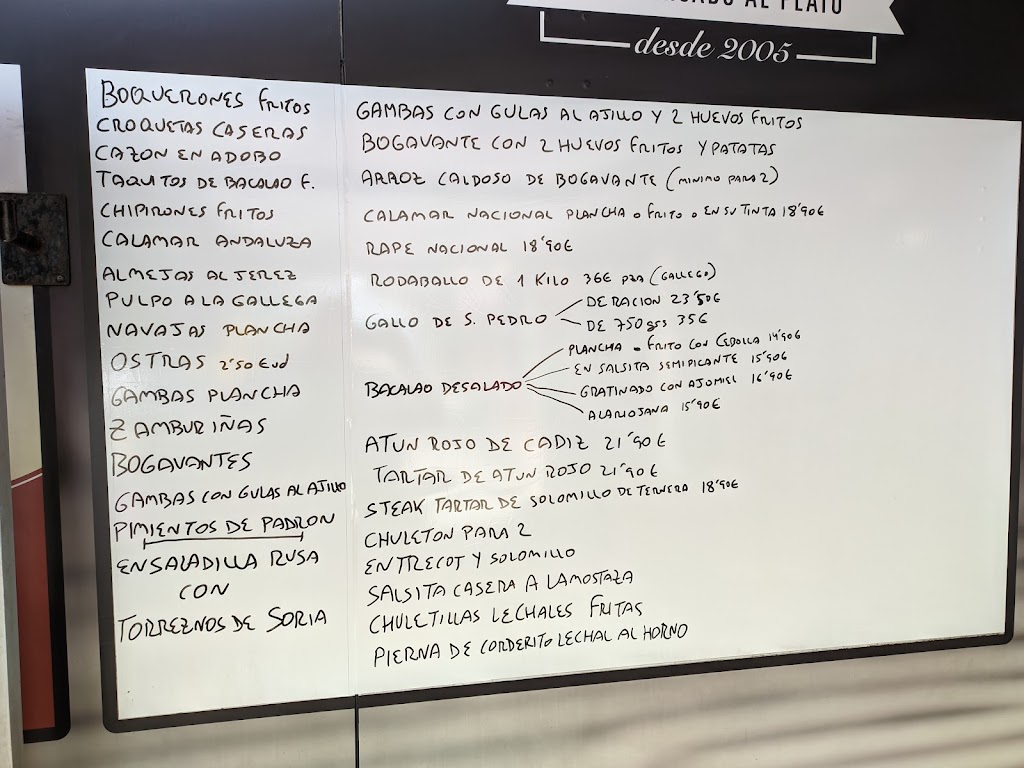 AL PLATO
desde 2005
BOQUERONES FRITOS
CROQUETAS CASERAS
CAZON EN ADOBO
TAQUITOS DE BACALAO F.
CHIPIRONES FRITOS
CALAMAR ANDALUZA
ALMEJAS AL JEREZ
PULPO A LA GALLEGA
NAVAJAS PLANCHA
OSTRAS 2'50 € ud
GAMBAS PLANCHA
ZAMBURIÑAS
BOGAVANTES
GAMBAS CON GULAS AL AJILLO
PIMIENTOS DE PADRON
ENSALADILLA RUSA
CON
TORREZNOS DE SORIA
GAMBAS CON GULAS AL AJILLO Y 2 HUEVOS FRITOS
BOGAVANTE CON 2 HUEVOS FRITOS Y PATATAS
ARROZ CALDOSO DE BOGAVANTE (MINIMO PARA 2)
CALAMAR NACIONAL PLANCHA o FRITO o EN SU TINTA 18'90€
RAPE NACIONAL 18'90€
RODABALLO DE 1 KILO 36€ PZA (GALLEGO)
GALLO DE S. PEDRO
DE RACION 23'50€
DE 750 grs 35€
BACALAO DESALADO
PLANCHA - FRITO CON CEBOLLA 14'90€
EN SALSITA SEMIPICANTE 15'90€
GRATINADO CON AJOMIEL 16'90€
A LA RIOJANA 15'90€
ATUN ROJO DE CADIZ 21'90€
TARTAR DE ATUN ROJO 21'90€
STEAK TARTAR DE SOLOMILLO DE TERNERA 18'90€
CHULETON PARA 2
ENTRECOT Y SOLOMILLO
SALSITA CASERA A LA MOSTAZA
CHULETILLAS LECHALES FRITAS
PIERNA DE CORDERITO LECHAL AL HORNO